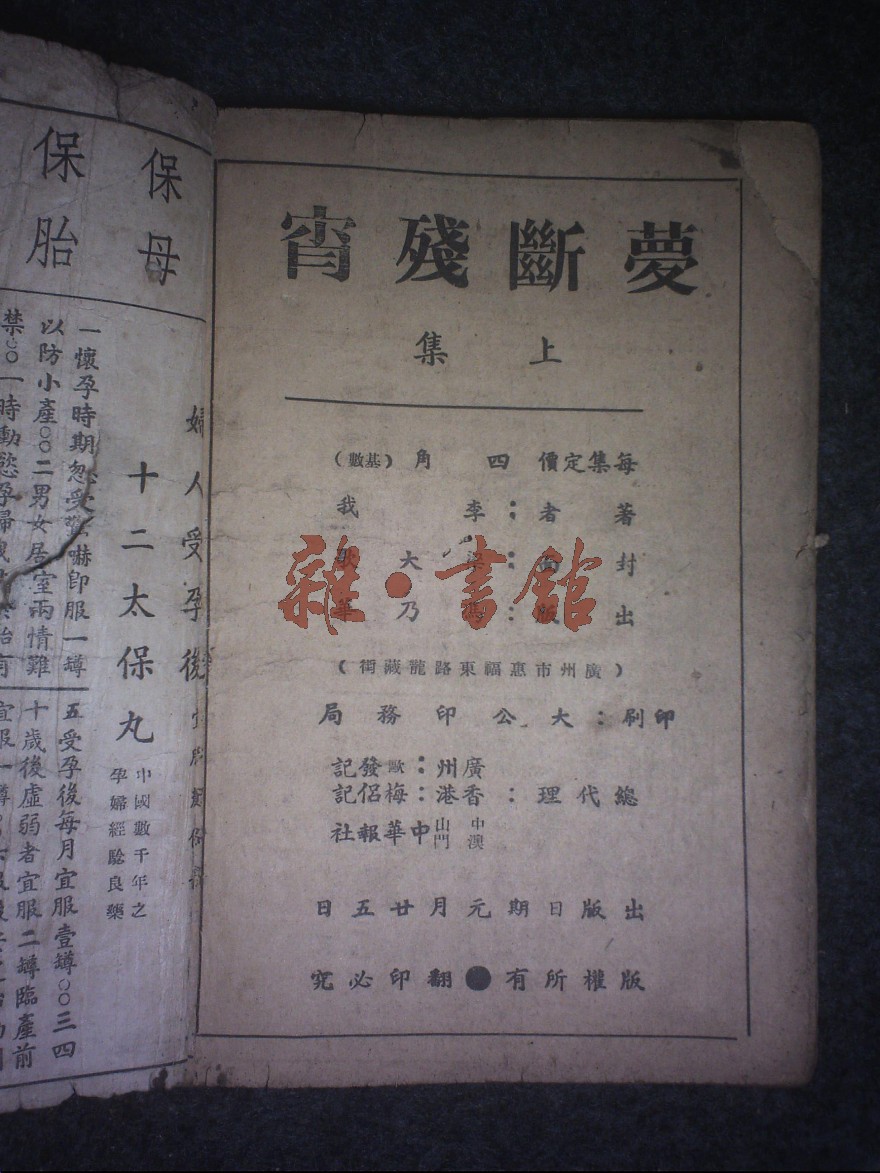 夢斷殘宵
上集
每集定價四角（基數）
著者：李我
封面：梁大
出版：馮乃
（廣州市惠福東路龍藏街）
印刷：大公印務局
總代理：
廣州：歐發記
香港：梅侶記
中山
澳門
中華報社
出版日期元月廿五日
版權所有●翻印必究
雜·書館
婦人受孕後宜
保母
保胎
十二太保丸
中國數千年之
孕婦經驗良藥
一懷孕時期忽受驚嚇即服一罇
以防小產○○二男女居室兩情難
禁○○一時動慾孕婦
五受孕後每月宜服壹罇○○三四
十歲後虛弱者宜服二罇臨產前
宜服一罇